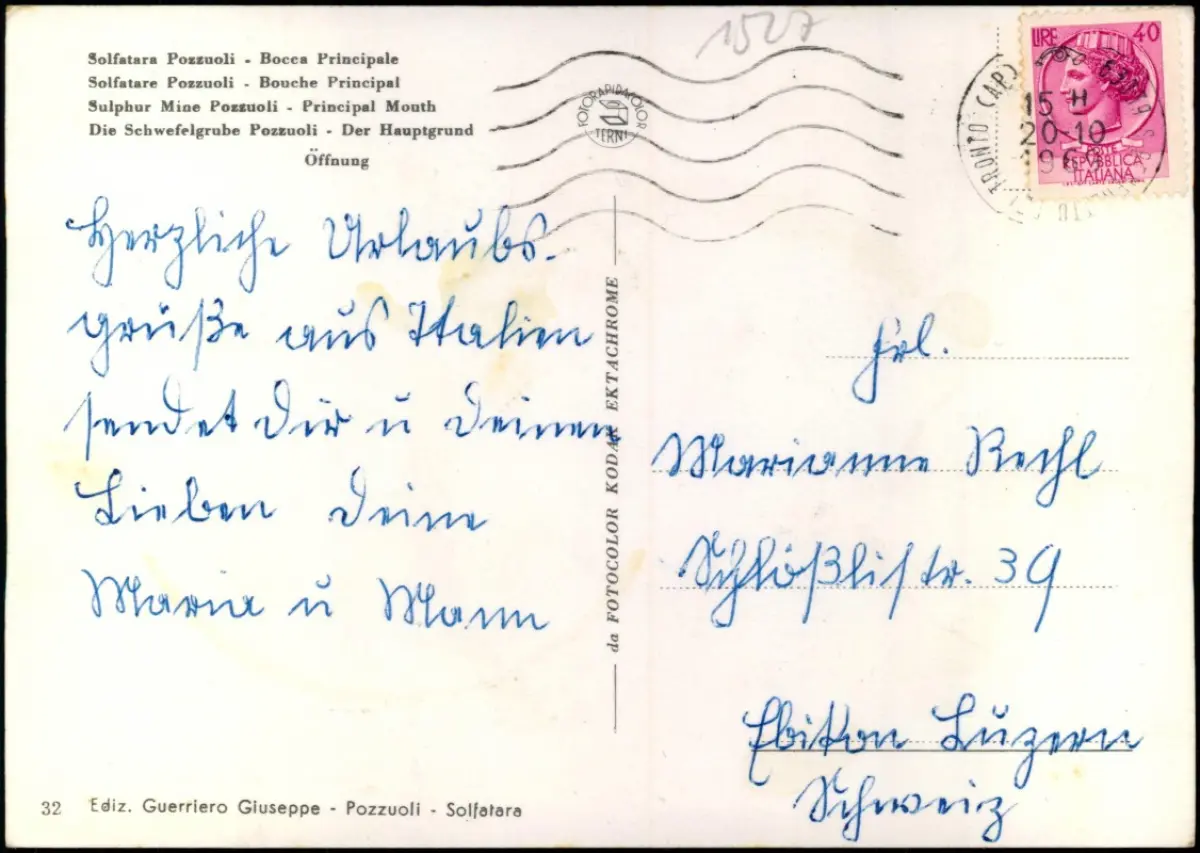 1527
Solfatara Pozzuoli - Bocca Principale
Solfatare Pozzuoli - Bouche Principal
Sulphur Mine Pozzuoli - Principal Mouth
Die Schwefelgrube Pozzuoli - Der Hauptgrund
Öffnung
FOTORAPIDACOLOR
TERNI
LIRE 40
15-H
20-10
POSTE
REPVBBLICA
ITALIANA
Herzliche Urlaubs-
grüße aus Italien
sendet Dir u Deinen
Lieben Deine
Maria u Mann
da FOTOCOLOR KODAK EKTACHROME
Frl.
Marianne Rechl
Schlößlistr. 39
Ebikon Luzern
Schweiz
32 Ediz. Guerriero Giuseppe - Pozzuoli - Solfatara